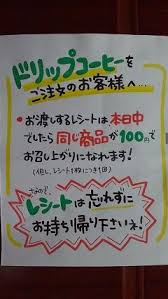 ドリップコーヒーを
ご注文のお客様へ…
・お渡しするレシートは本日中
でしたら同じ商品が100円で
お召し上がりになれます!
(但し、レシート1枚につき1回)
なので、
レシートは忘れずに
お持ち帰り下さいネ!